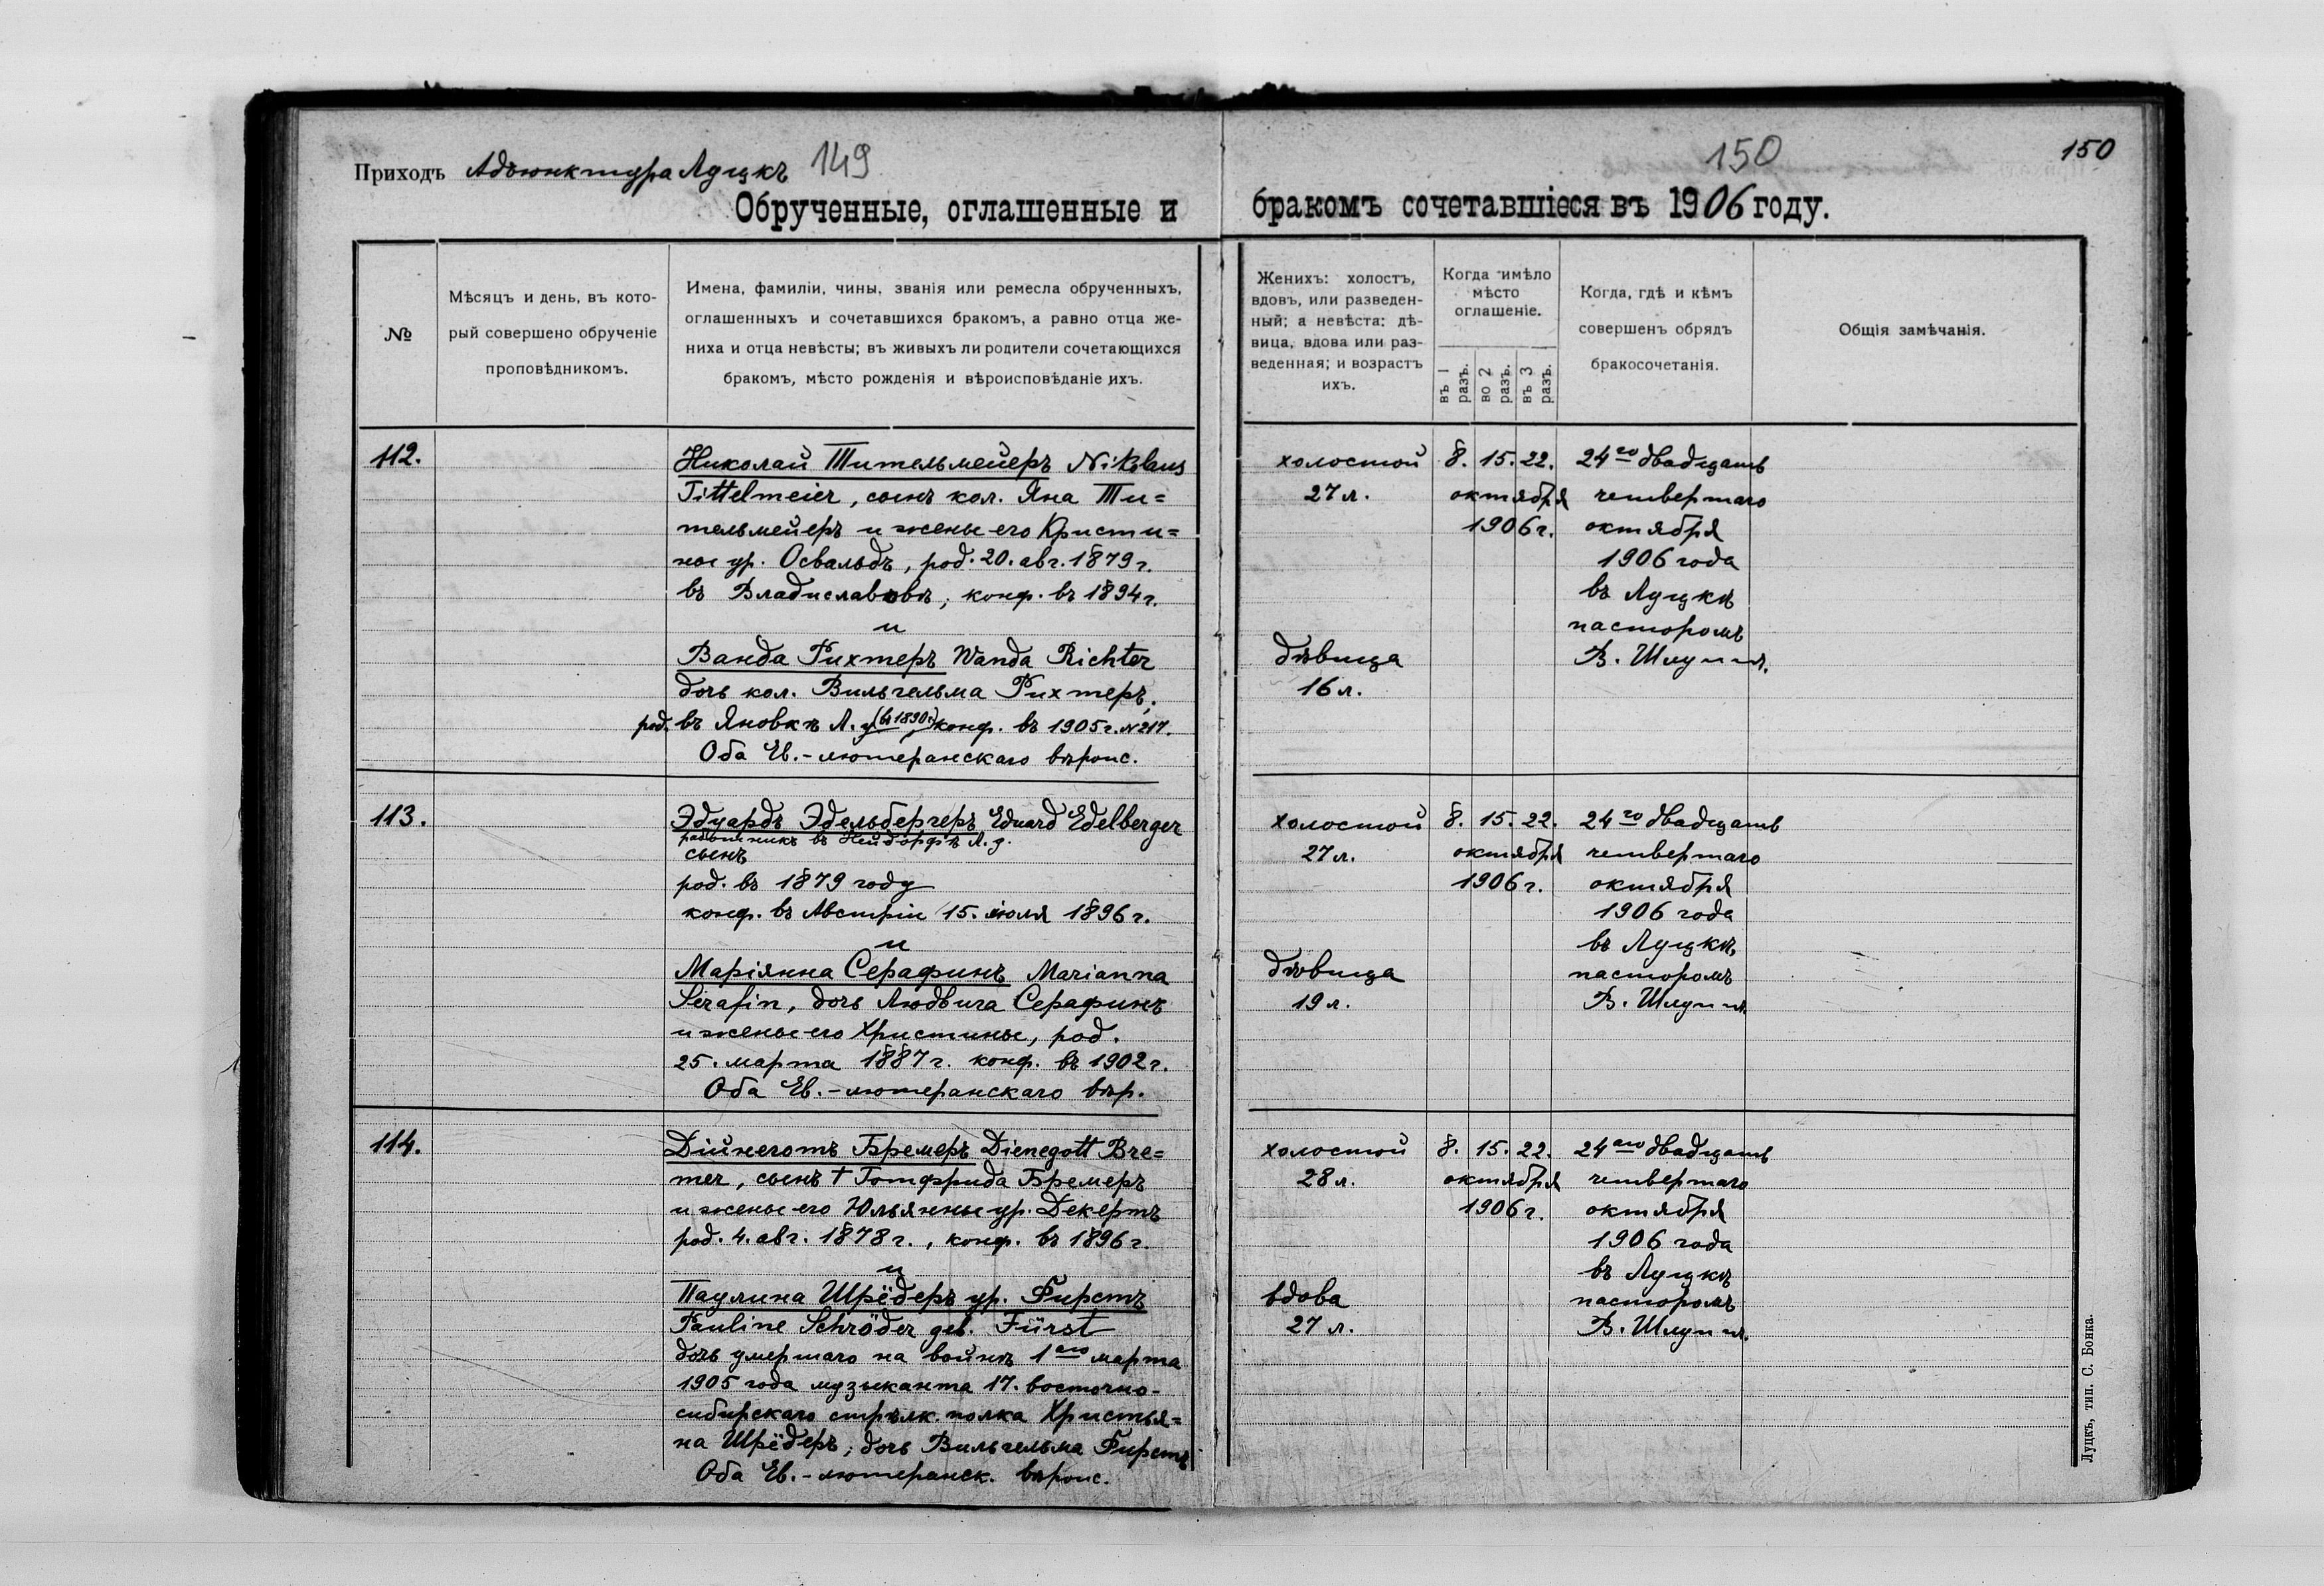 Приходъ Адъюнктура Луцкъ 149
Обрученные, оглашенные и
№
Мѣсяцъ и день, въ кото-
рый совершено обрученіе
проповѣдникомъ.
Имена, фамиліи, чины, званія или ремесла обрученныхъ,
оглашенныхъ и сочетавшихся бракомъ, а равно отца же-
ниха и отца невѣсты; въ живыхъ ли родители сочетающихся
бракомъ, мѣсто рожденія и вѣроисповѣданіе ихъ.
112.
Николай Тительмейеръ Niklaus
Tittelmeier, сынъ кол. Яна Ти=
тельмейеръ и жены его Кристи=
ны ур. Освальдъ, род. 20. авг. 1879 г.
въ Владиславовѣ, конф. въ 1894 г.
и
Ванда Рихтеръ Wanda Richter
дочь кол. Вильгельма Рихтеръ,
род. въ Яновкѣ Л. у. (въ 1890 г.) конф. въ 1905 г. № 217.
Оба Ев.-лютеранскаго вѣроис.
113.
Эдуардъ Эдельбергеръ Eduard Edelberger
работникъ въ Нейдорфѣ Л. у.
сынъ
род. въ 1879 году
конф. въ Австріи 15. іюля 1896 г.
и
Маріянна Серафинъ Marianna
Serafin, дочь Людвига Серафинъ
и жены его Христины, род.
25. марта 1887 г. конф. въ 1902 г.
Оба Ев.-лютеранскаго вѣр.
114.
Дійнеготъ Бремеръ Dienegott Bre=
mer, сынъ † Готфрида Бремеръ
и жены его Юльянны ур. Декертъ
род. 4. авг. 1878 г., конф. въ 1896 г.
и
Паулина Шрёдеръ ур. Фирстъ
Pauline Schröder geb. Fürst
дочь умершаго на войнѣ 1аго марта
1905 года музыканта 17. восточно-
сибирскаго стрѣлк. полка Христья=
на Шрёдеръ, дочь Вильгельма Фирстъ
Оба Ев.-лютеранск. вѣроис.
150
150
бракомъ сочетавшіеся въ 1906 году.
Женихъ: холостъ,
вдовъ, или разведен-
ный; а невѣста: дѣ-
вица, вдова или раз-
веденная; и возрастъ
ихъ.
Когда имѣло
мѣсто
оглашеніе.
въ 1
разъ.
во 2
разъ.
въ 3
разъ.
Когда, гдѣ и кѣмъ
совершенъ обрядъ
бракосочетанія.
Общія замѣчанія.
холостой 8. 15. 22. 24го двадцать
27 л. октября четвертаго
1906 г. октября
1906 года
въ Луцкѣ
пасторомъ
дѣвица В. Шлуппъ.
16 л.
холостой 8. 15. 22. 24го двадцать
27 л. октября четвертаго
1906 г. октября
1906 года
въ Луцкѣ
дѣвица пасторомъ
19 л. В. Шлуппъ.
холостой 8. 15. 22. 24аго двадцать
28 л. октября четвертаго
1906 г. октября
1906 года
въ Луцкѣ
вдова пасторомъ
27 л. В. Шлуппъ.
Луцкъ, тип. С. Бонка.